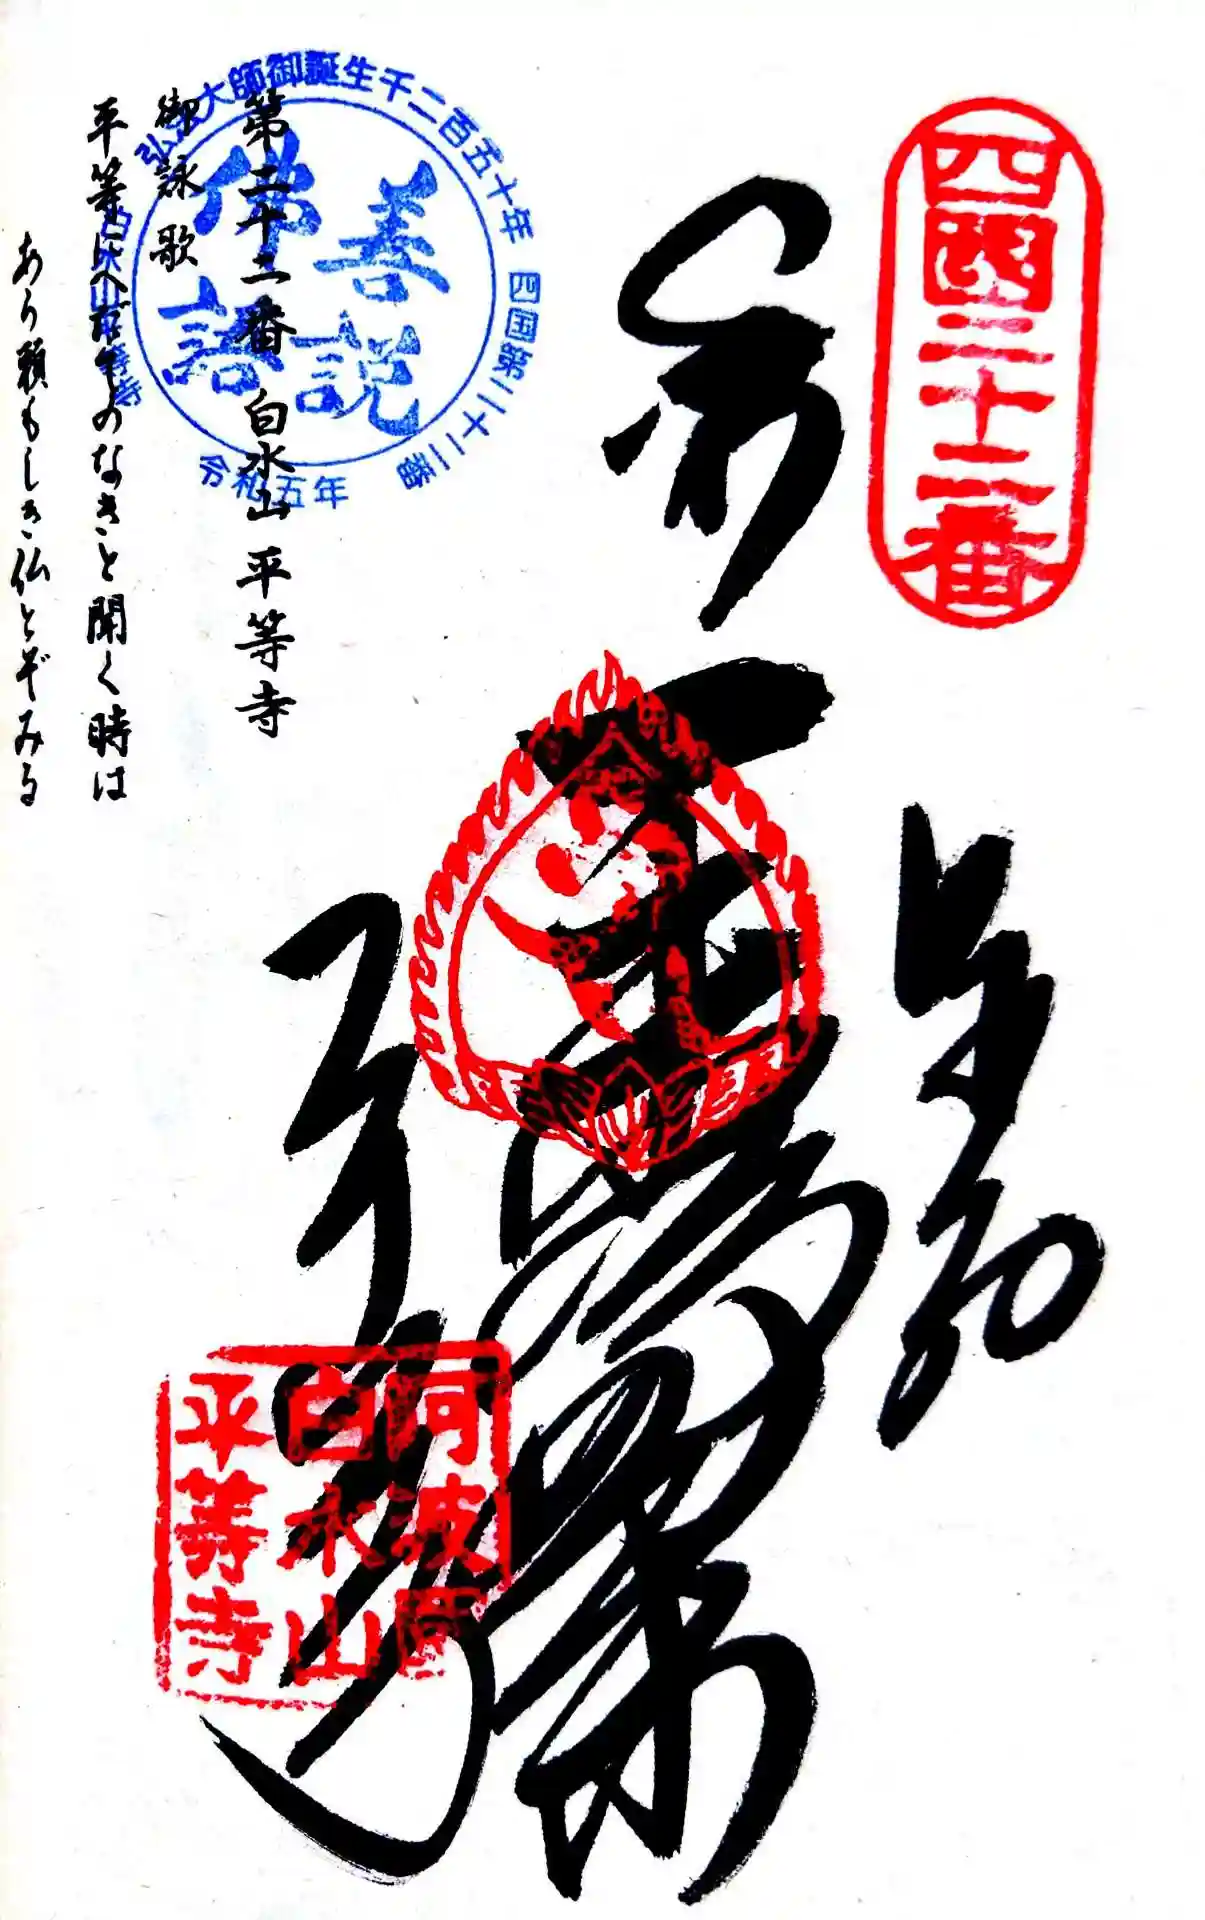 四国二十二番
奉納
薬師
平等寺
弘法大師御誕生千二百五十年
四国第二十二番
令和五年
白水山平等寺
善説
佛語
阿波国
白水山
平等寺
第二十二番 白水山 平等寺
御詠歌
平等にへだてのなきと聞く時は
あら頼もしき仏とぞみる